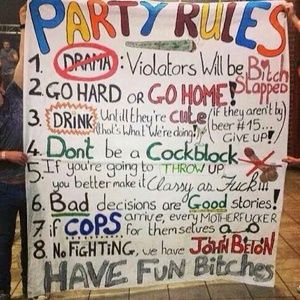 PARTY RULES
1. DRAMA: Violators Will be Bitch Slapped
2. GO HARD OR GO HOME!
3. DRINK Untill they're cute (if they aren't by
(that's what We're doing!) beer #15...
GIVE UP!
4. Dont be a Cockblock
5. If you're going to THROW UP
you better make it Classy as Fuck!!!
6. Bad decisions are Good stories!
7. if COPS arrive, every MOTHERFUCKER
for themselves
8. No FIGHTING, we have JOHN
HAVE FUN Bitches